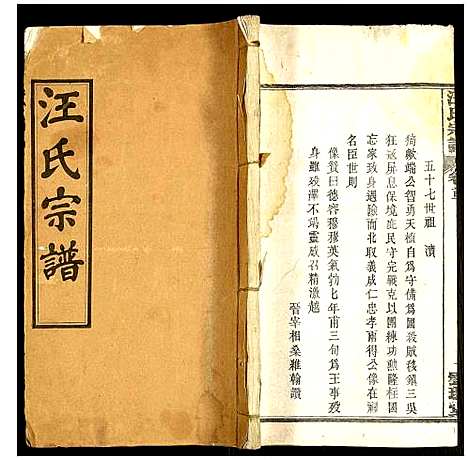 汪氏宗譜
汪氏宗譜
五十七世祖 濆
猗歟端公智勇天楨自爲守備爲國殺賊移鎮三吳
狂寇屏息保境庇民守完戰克以團練功勳隆柱國
忘家致身遇險而北取義成仁忠孝兩得公像在淵
名臣世則
像贊曰德容穆穆英氣勃勃七年甫三旬爲王事歿
身雖殁澤不竭靈威召精激越
晉宰相桑維翰讚